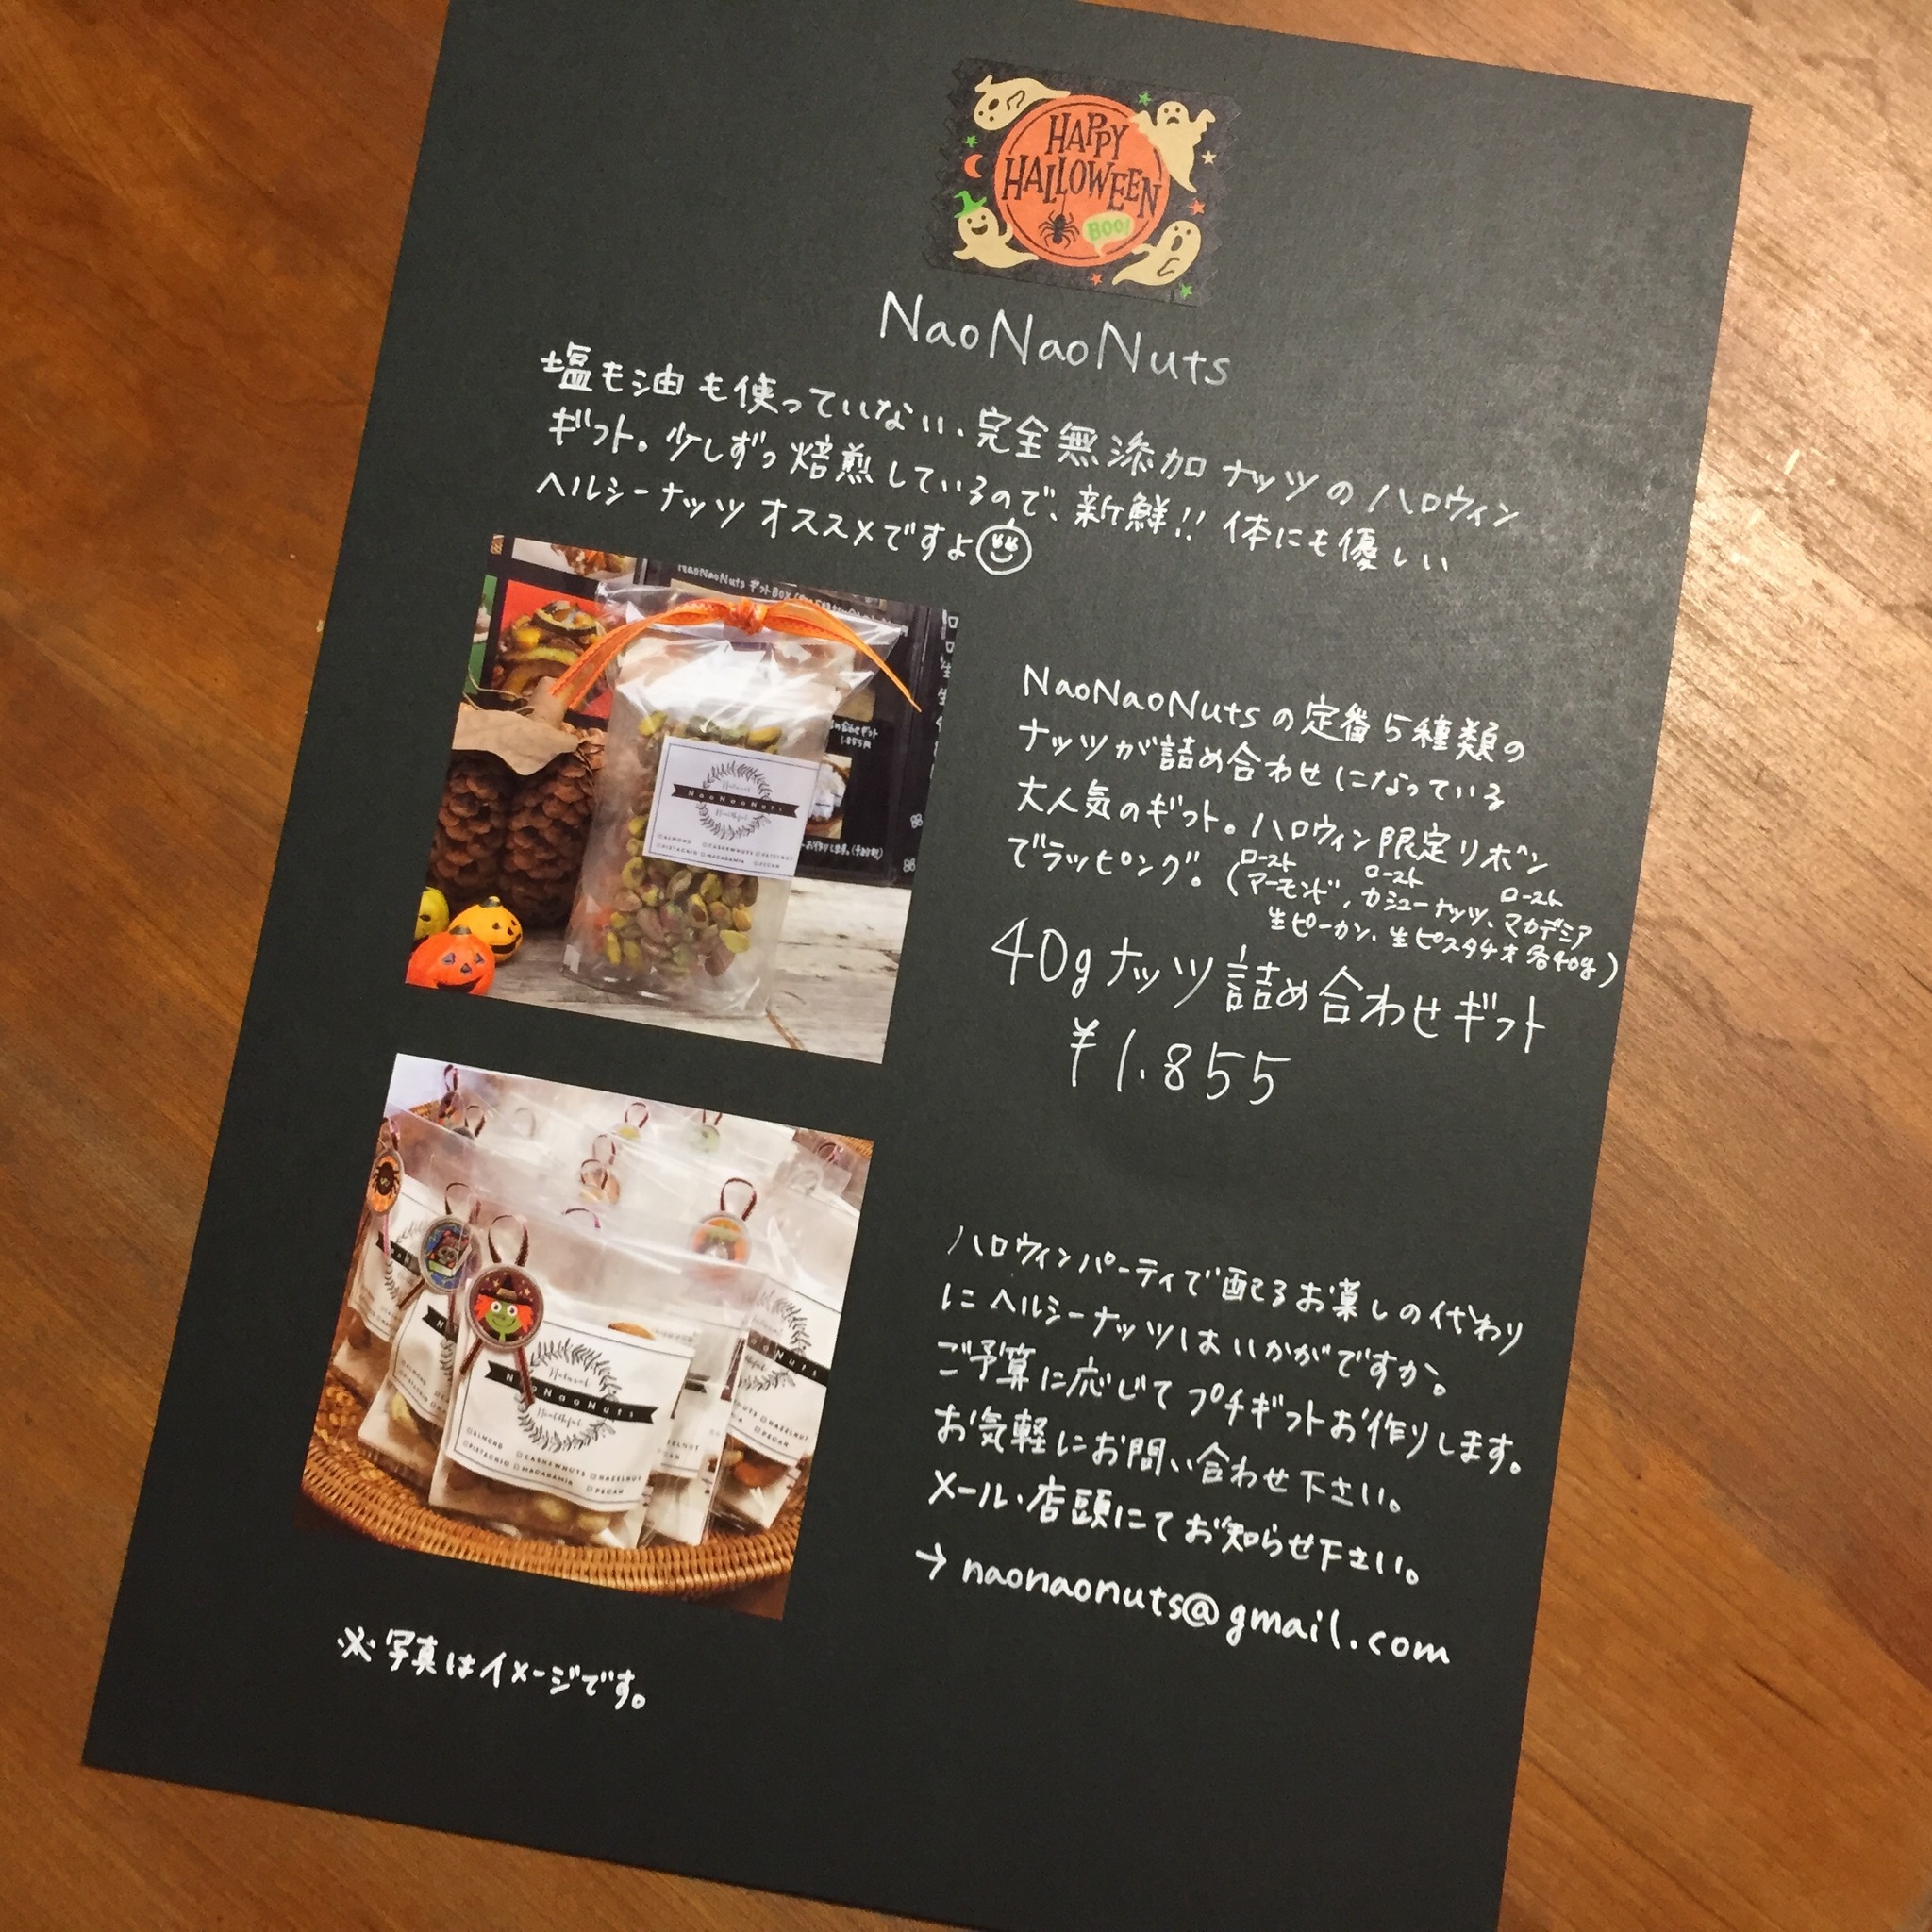 HAPPY
HALLOWEEN
BOO!
NaoNaoNuts
塩も油も使っていない、完全無添加ナッツのハロウィン
ギフト。少しずつ焙煎しているので、新鮮!! 体にも優しい
ヘルシーナッツオススメですよ
NaoNaoNuts ギフトBOX
1.855円
Natural
NaoNaoNuts
Healthful
□ALMOND □CASHEWNUTS □HAZELNUT
□PISTACHIO □MACADAMIA □PECAN
NaoNaoNutsの定番5種類の
ナッツが詰め合わせになっている
大人気のギフト。ハロウィン限定リボン
でラッピング。(ローストアーモンド、ローストカシューナッツ、ローストマカデミア
生ピーカン、生ピスタチオ各40g)
40gナッツ詰め合わせギフト
¥1.855
Natural
NaoNaoNuts
Healthful
□ALMOND □CASHEWNUTS □HAZELNUT
□PISTACHIO □MACADAMIA □PECAN
ハロウィンパーティで配るお菓しの代わり
にヘルシーナッツはいかがですか。
ご予算に応じてプチギフトお作りします。
お気軽にお問い合わせ下さい。
メール・店頭にてお知らせ下さい。
→ naonaonuts@gmail.com
※写真はイメージです。